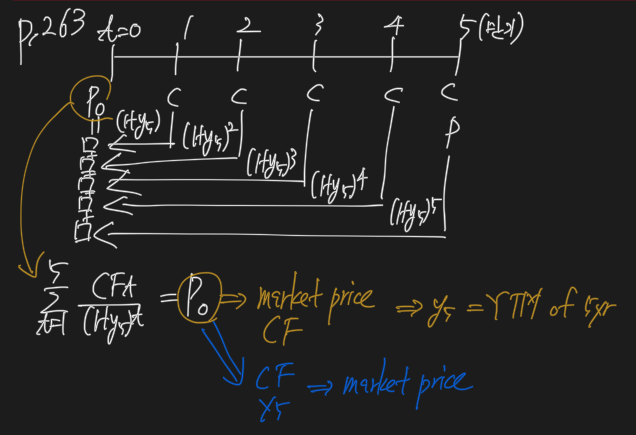 p.263 t=0 1 2 3 4 5(만기)
P₀ C C C C C
P
(1+y₅) (1+y₅)² (1+y₅)³ (1+y₅)⁴ (1+y₅)⁵
5
∑ CFt / (1+y₅)^t = P₀ ⇒ market price ⇒ y₅ = YTM of 5yr
t=1
CF
CF ⇒ market price
y₅